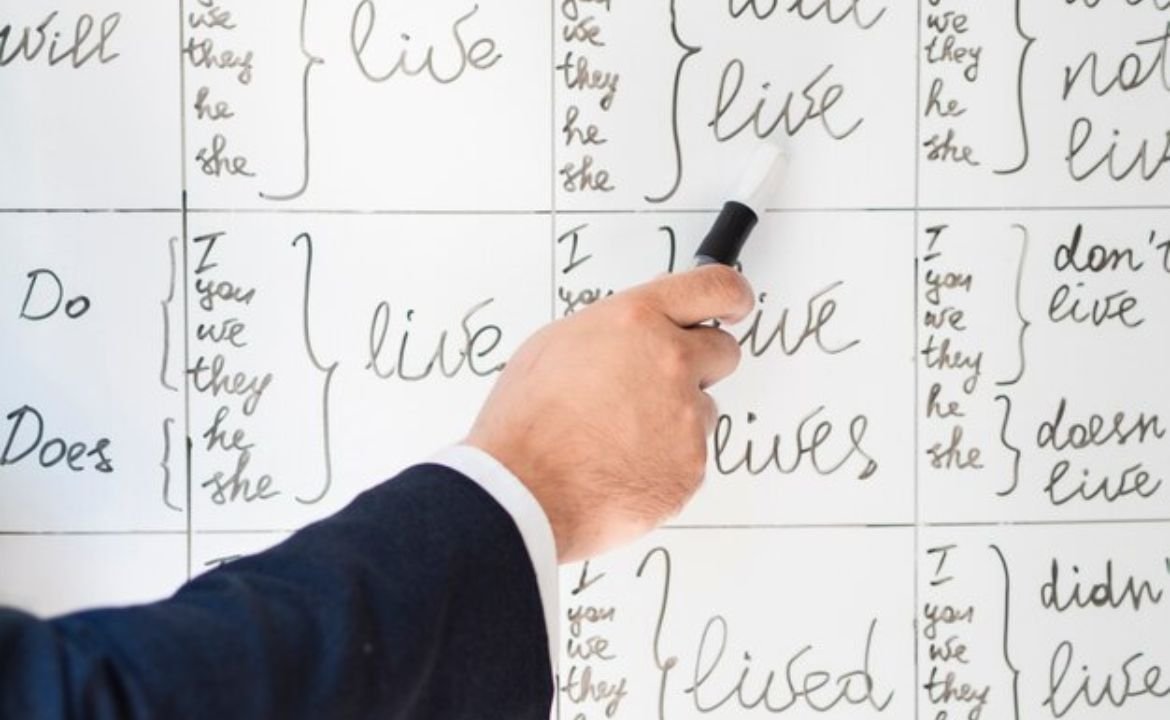 will
we
they
he
she
live
we
they
he
she
live
we
they
he
she
not
Do
Does
I
you
we
they
he
she
live
I
lives
I
you
we
they
he
she
don't
live
doesn
live
I
you
we
they
lived
I
you
we
they
didn'
live